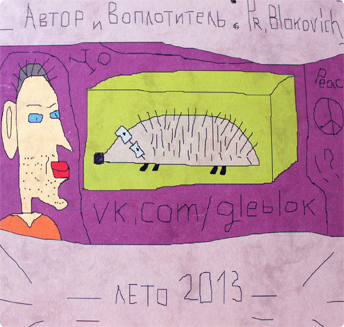 Автор и Воплотитель: Pr. Blokovich
Peac
vk.com/gleblok
— ЛЕТО 2013 —